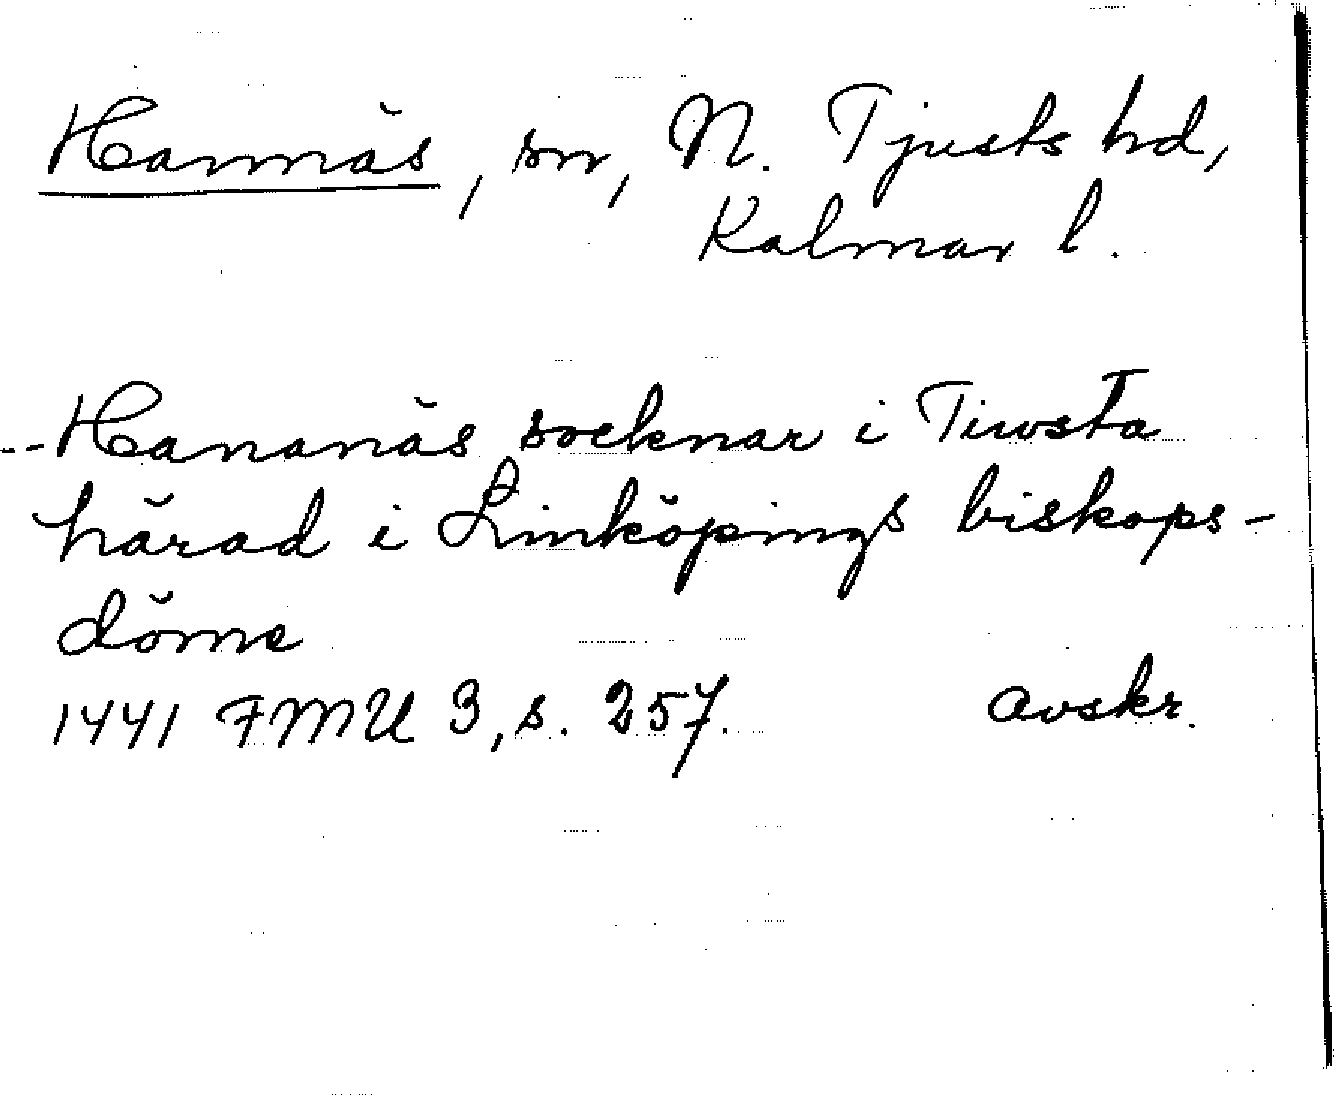 Hannäs, sn, N. Tjusts hd,
Kalmar l.
-- Hananäs socknar i Tiwsta
härad i Linköpings biskops-
döme
1441 FMU 3, s. 257. avskr.